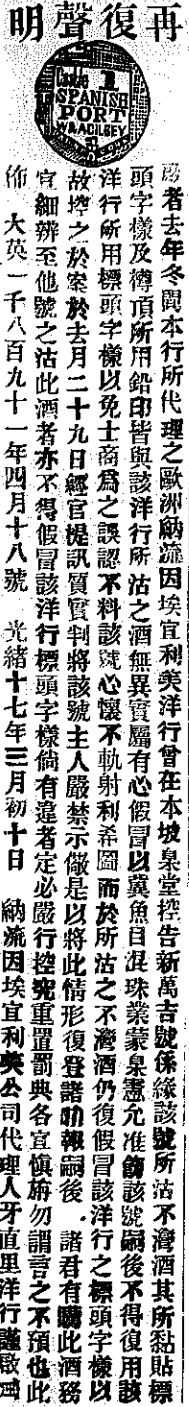 再復聲明
1
SPANISH
PORT
W&A GILBEY
啟者去年冬聞本行所代理之歐洲納流因埃宜利英洋行曾在本坡臬堂控告新萬吉號係緣該號所沽不灣酒其所黏貼標
頭字樣及樽頂所用鉛印皆與該洋行所沽之酒無異實屬有心假冒以冀魚目混珠業蒙臬憲允准飭該號嗣後不得復用該
洋行所用標頭字樣以免士商為之誤認不料該號心懷不軌射利希圖而於所沽之不灣酒仍復假冒該洋行之標頭字樣以
故控之於案於去月二十九日經官提訊質實判將該號主人嚴禁示儆是以將此情形復登諸叻報嗣後諸君有購此酒務
宜細辨至他號之沽此酒者亦不得假冒該洋行標頭字樣倘有違者定必嚴行控究重置罰典各宜慎旃勿謂言之不預也此
佈　大英一千八百九十一年四月十八號　光緒十七年三月初十日　納流因埃宜利英公司代理人牙直里洋行謹啟